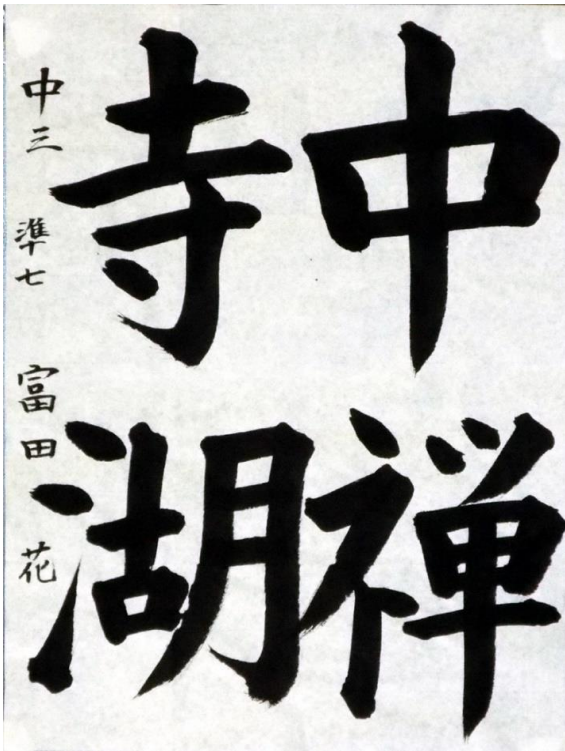 中禅
寺湖
中三 準七 富田 花